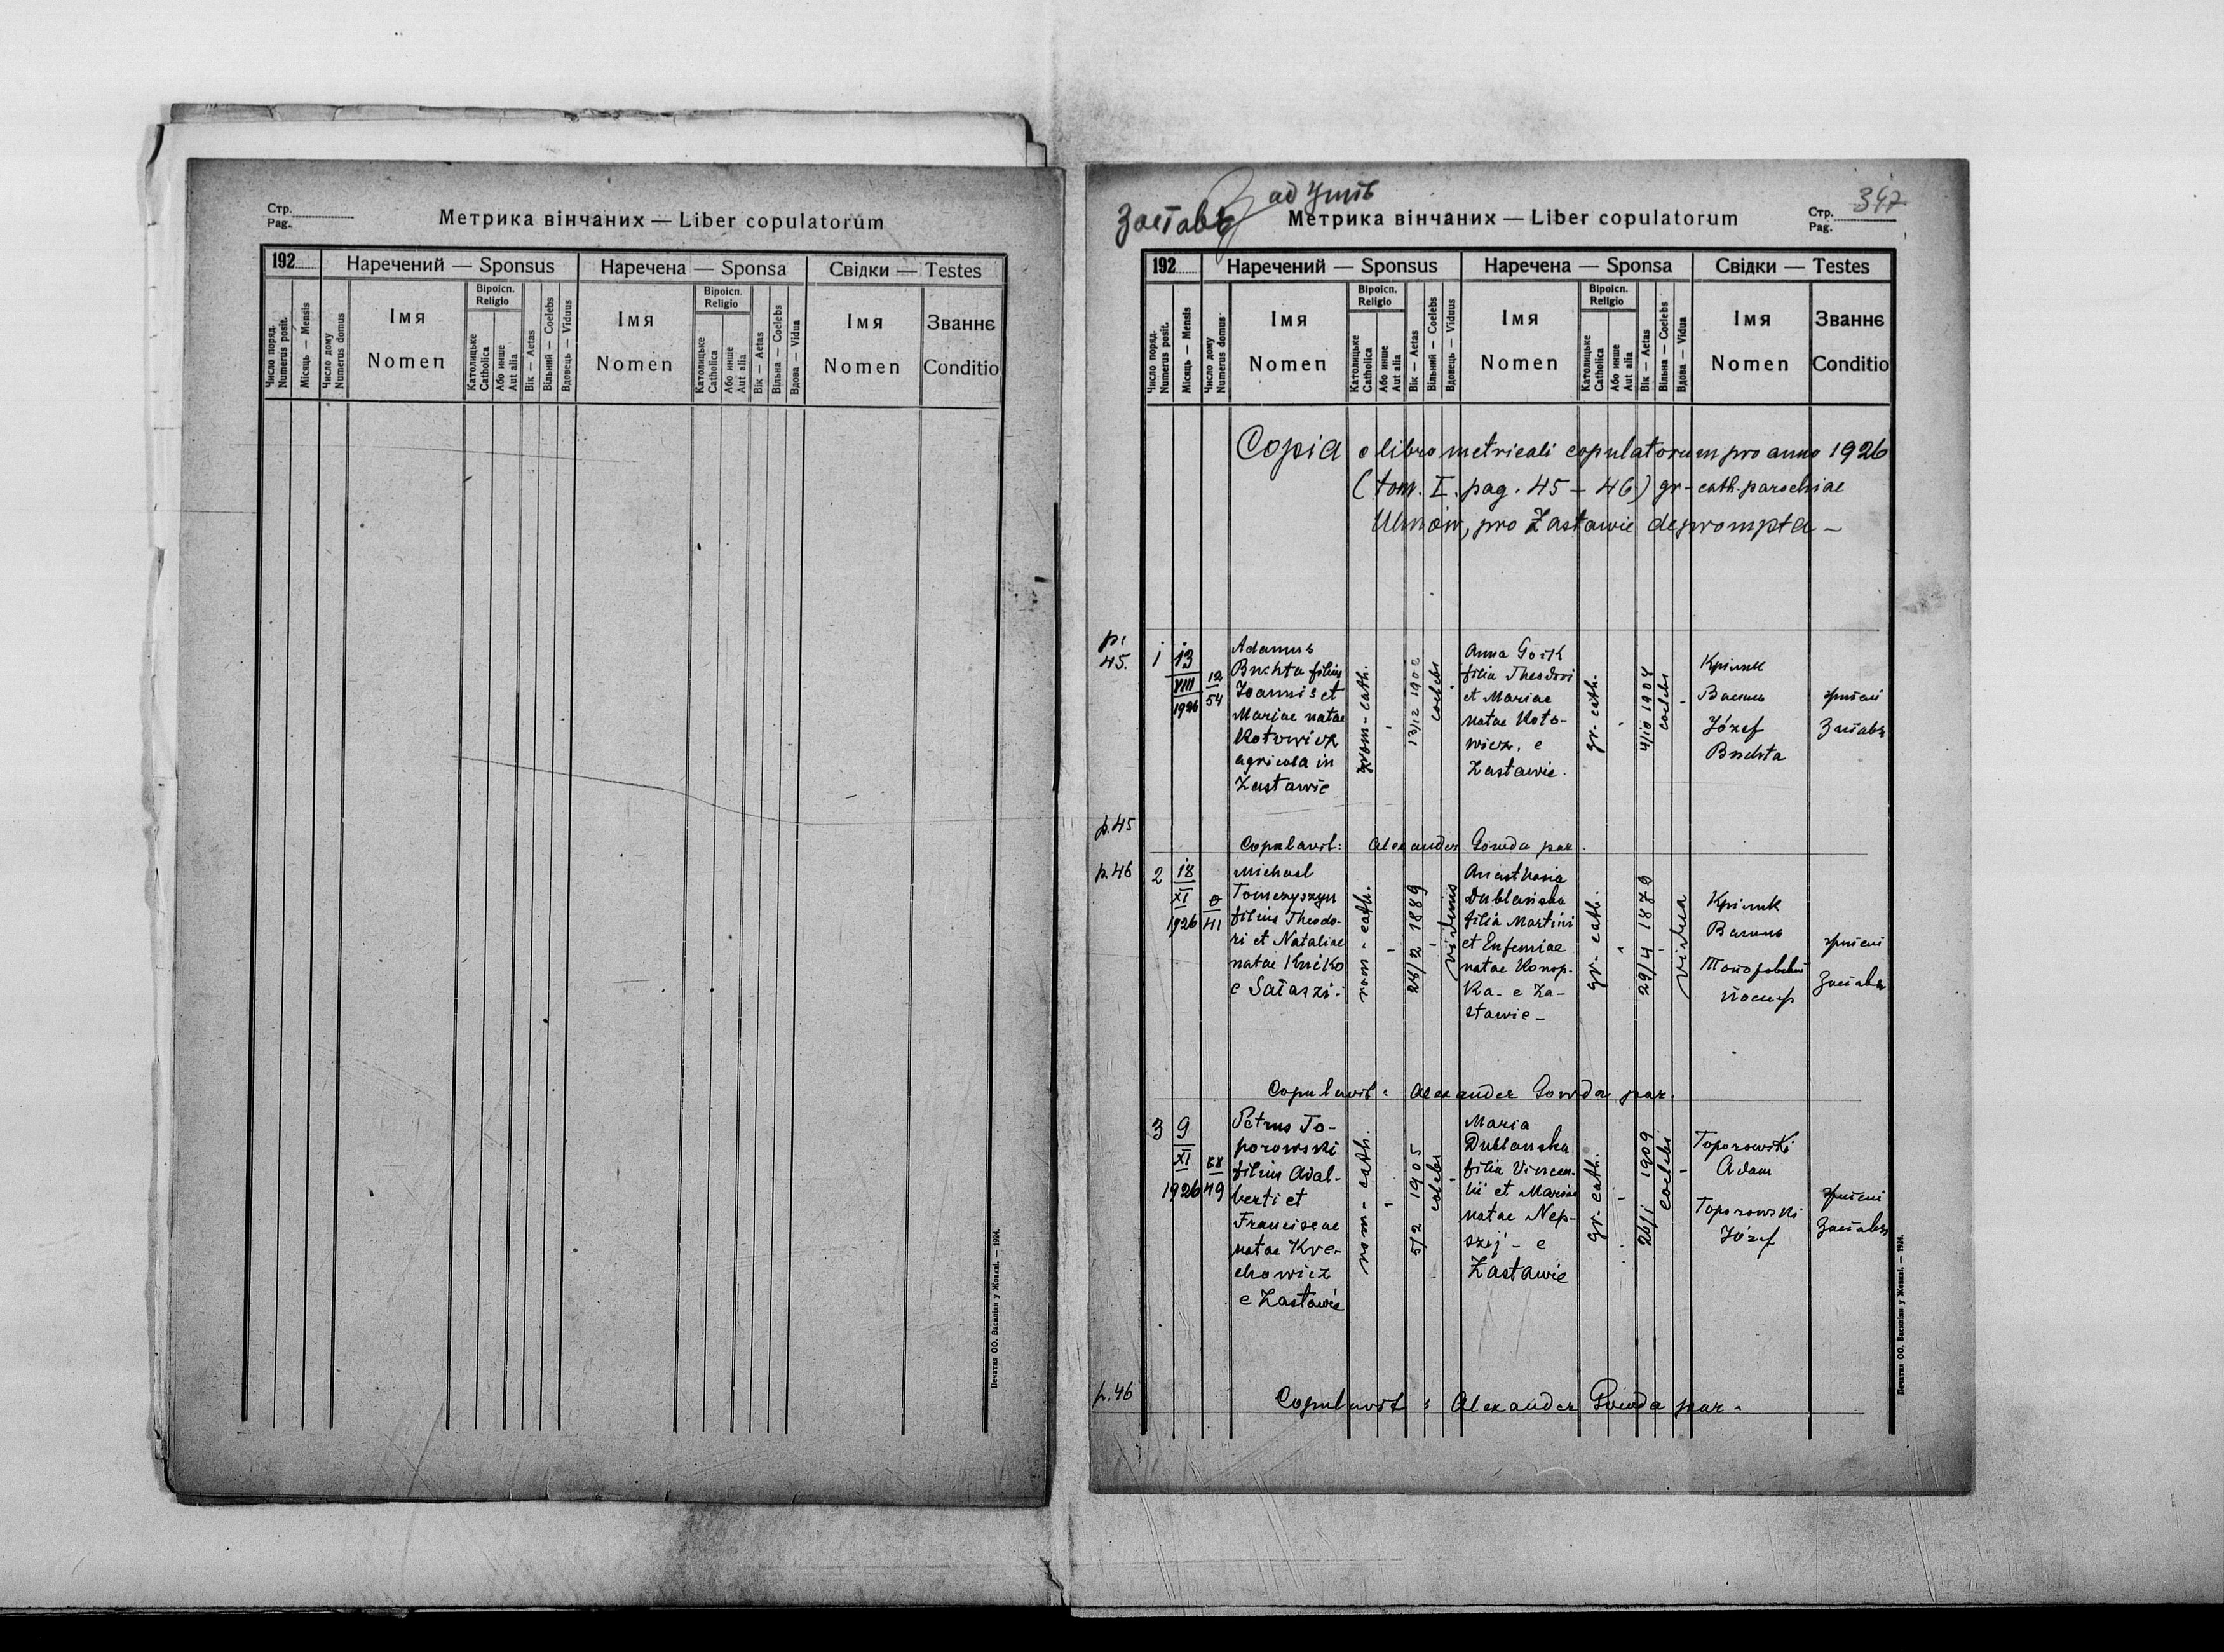 Стр.
Pag.
Метрика вінчаних — Liber copulatorum
192
Наречений — Sponsus
Наречена — Sponsa
Свідки — Testes
Число поряд.
Numerus posit.
Місяць — Mensis
Число дому
Numerus domus
Імя
Nomen
Віроісп.
Religio
Католицьке
Catholica
Або инше
Aut alia
Вік — Aetas
Вільний — Coelebs
Вдовець — Viduus
Імя
Nomen
Віроісп.
Religio
Католицьке
Catholica
Або инше
Aut alia
Вік — Aetas
Вільна — Coelebs
Вдова — Vidua
Імя
Nomen
Званнє
Conditio
Печатня ОО. Василіян у Жовкві. — 1924.
Заставє
ad
Метрика вінчаних — Liber copulatorum
Стр.
Pag.
347
192
Наречений — Sponsus
Наречена — Sponsa
Свідки — Testes
Число поряд.
Numerus posit.
Місяць — Mensis
Число дому
Numerus domus
Імя
Nomen
Віроісп.
Religio
Католицьке
Catholica
Або инше
Aut alia
Вік — Aetas
Вільний — Coelebs
Вдовець — Viduus
Імя
Nomen
Віроісп.
Religio
Католицьке
Catholica
Або инше
Aut alia
Вік — Aetas
Вільна — Coelebs
Вдова — Vidua
Імя
Nomen
Званнє
Conditio
Copia e libro metricali copulatorum pro anno 1926
(tom. I. pag. 45 – 46) gr-cath. parochiae
Uhnów, pro Zastawie deprompta –
p.
45.
1
13
VIII
1926
12
54
Adamus
Buchta filius
Joannis et
Mariae natae
Kotowicz
agricola in
Zastawie
rom-cath.
13/12 1902
coelebs
Anna Gosik
filia Theodori
et Mariae
natae Koto-
wicz. e
Zastawie.
gr-cath.
4/10 1904
coelebs
Крілик
Василь
Józef
Buchta
Заставє
p. 45
Copulavit: Alexander Gowda par.
p. 46
2
18
XI
1926
41
Michael
Tomczyszyn
filius Theodo-
ri et Nataliae
natae Kniko
e
rom-cath.
28/2 1889
viduus
Anasthasia
Dublańska
filia Martini
et Eufemiae
natae Konop-
ka - e Za-
stawie –
gr-cath.
29/4 1879
vidua
Крілик
Василь
Топоровский
Йосиф
Заставє
Copulavit: Alexander Gowda par.
3
9
XI
1926
68
49
Petrus To-
porowski
filius Adal-
berti et
Franciscae
natae Kre-
chowicz
e Zastawie
rom-cath.
5/2 1905
coelebs
Maria
Dublanska
filia Vincen-
tii et Mariae
natae Nep-
szej - e
Zastawie
gr-cath.
26/1 1909
coelebs
Toporowski
Adam
Toporowski
Józef
Заставє
p. 46
Copulavit: Alexander Gowda par.
Печатня ОО. Василіян у Жовкві. — 1924.